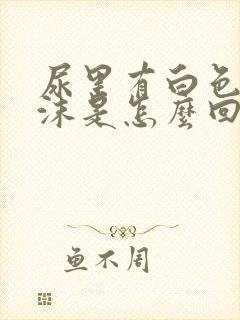 尿里有白色
沫是怎麼回
鱼不周